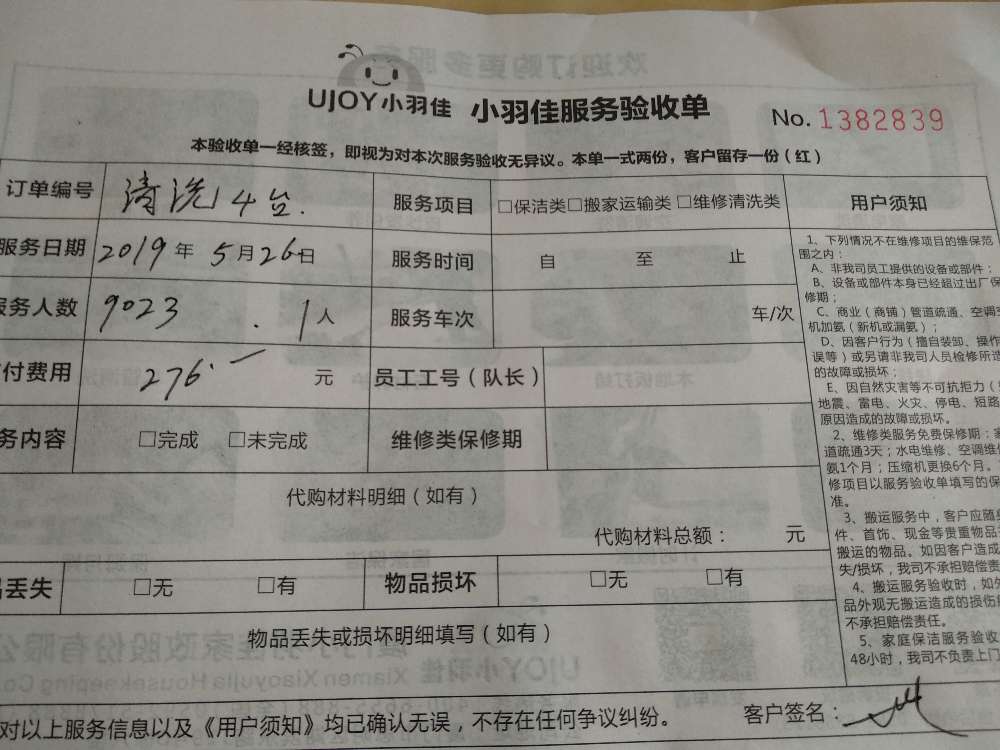 UJOY小羽佳 小羽佳服务验收单 No.1382839
本验收单一经核签，即视为对本次服务验收无异议。本单一式两份，客户留存一份（红）
订单编号 清洗4台. 服务项目 □保洁类□搬家运输类 □维修清洗类
服务日期 2019年 5月26日 服务时间 自 至 止
服务人数 9023 . 1人 服务车次 车/次
付费用 276.一 元 员工工号（队长）
务内容 □完成 □未完成 维修类保修期
代购材料明细（如有）
代购材料总额： 元
品丢失 □无 □有 物品损坏 □无 □有
物品丢失或损坏明细填写（如有）
对以上服务信息以及《用户须知》均已确认无误，不存在任何争议纠纷。 客户签名：
用户须知
1、下列情况不在维修项目的维保范
围之内：
A、非我司员工提供的设备或部件；
B、设备或部件本身已经超过出厂保
修期；
C、商业（商铺）管道疏通、空调
机加氨（新机或漏氨）；
D、因客户行为（擅自装卸、操作
误等）或另请非我司人员检修所造
的故障或损坏；
E、因自然灾害等不可抗拒力（
地震、雷电、火灾、停电、短路
原因造成的故障或损坏。
2、维修类服务免费保修期：
道疏通3天；水电维修、空调维
氨1个月；压缩机更换6个月。
修项目以服务验收单填写的保
准。
3、搬运服务中，客户应随
件、首饰、现金等贵重物品
搬运的物品。如因客户造成
失/损坏，我司不承担赔偿责
4、搬运服务验收时，如
品外观无搬运造成的损伤
不承担赔偿责任。
5、家庭保洁服务验收
48小时，我司不负责上门